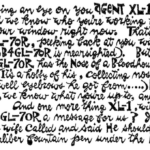 ing an eye on you, AGENT XL-1
we know who you're working
our window right now. That's
-70R, putting back at you
B4GL-70R is near sighted). But
GL-70R has the Nose of a Bloodhou
It's a hobby of his, Collecting nose
well eyebrow he got from....)
we know what you're up to, an
And one more thing XL-1, wi
GL-70R a message for us?
wife Called and Said He should
aller fountain pen under the